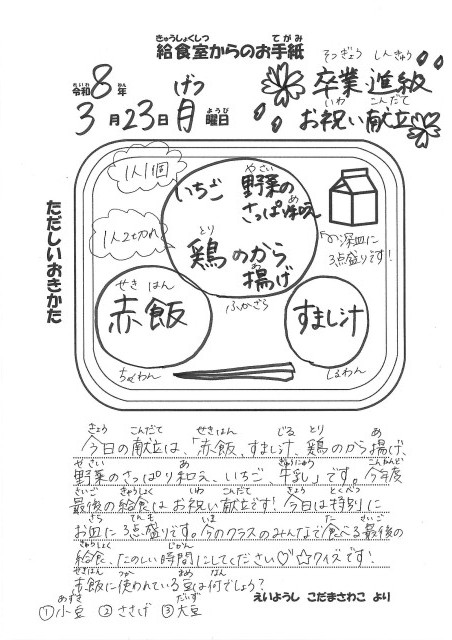 給食室からのお手紙
きゅうしょくしつ てがみ
令和8年
れいわ ねん
3月23日月曜日
げつ ようび
そつぎょう しんきゅう
卒業 進級
いわ こんだて
お祝い献立
ただしいおきかた
1人1個
1人2切れ
いちご
やさい
野菜の
あ
さっぱり和え
とり
鶏のから
あ
揚げ
深皿に
3点盛りです!
せき はん
赤飯
ふかざら
すまし汁
ちゃわん
しるわん
きょう こんだて せきはん じる とり あ
今日の献立は、「赤飯、すまし汁、鶏のから揚げ、
やさい あ ぎゅうにゅう こんねんど
野菜のさっぱり和え、いちご、牛乳」です。今年度
さいご きゅうしょく いわ こんだて きょう とくべつ
最後の給食はお祝い献立です!今日は特別に
さら てんも いま た さいご
お皿に3点盛りです。今のクラスのみんなで食べる最後の
きゅうしょく じかん
給食、たのしい時間にしてください♡☆クイズです!
せきはん つか まめ なん
赤飯に使われている豆は何でしょう?
あずき だいず
①小豆 ②ささげ ③大豆
えいようし こだまさわこ より